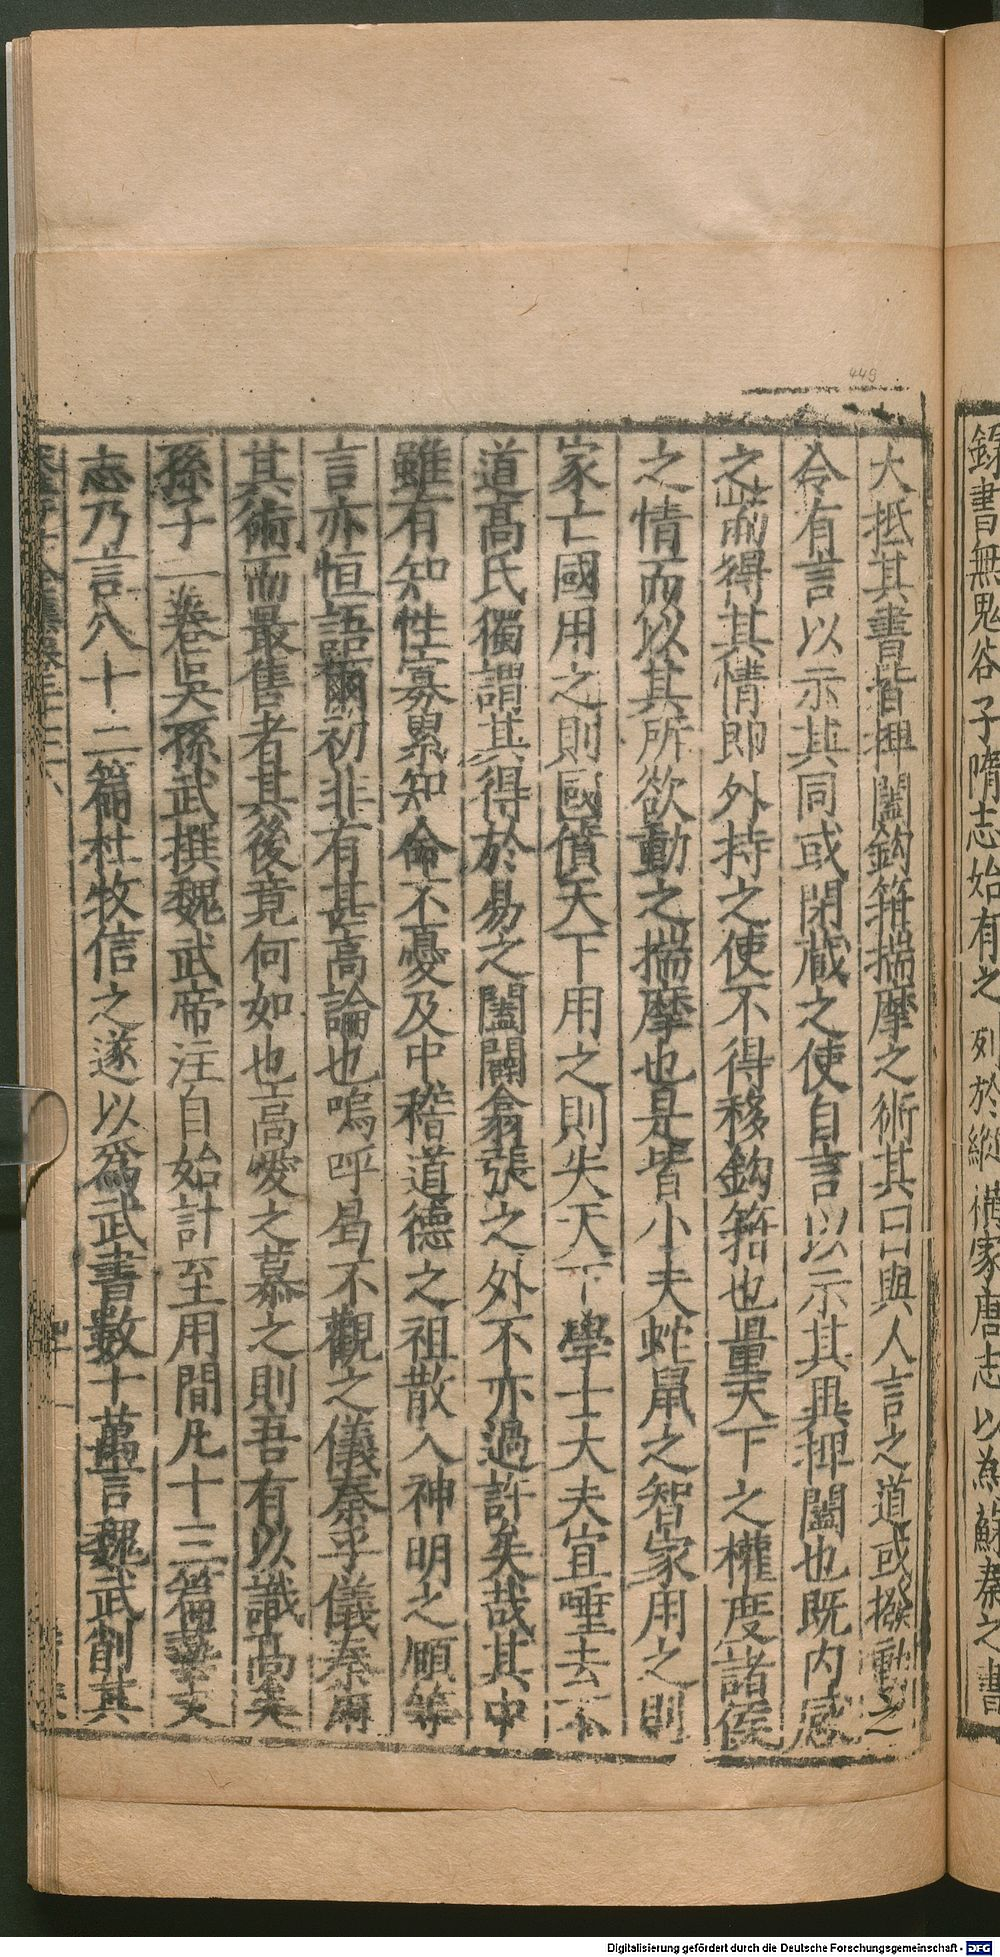 錄書無鬼谷子隋志始有之列於縱橫家唐志以為蘇秦之書
449
大抵其書皆捭闔鈎箝揣摩之術其曰與人言之道或撥動之
令有言以示其同或閉藏之使自言以示其異捭闔也既内感
之而得其情即外持之使不得移鈎箝也量天下之權度諸侯
之情而以其所欲動之揣摩也是皆小夫蛇鼠之智家用之則
家亡國用之則國僨天下用之則失天下學士大夫宜唾去不
道高氏獨謂其得於易之闔闢翕張之外不亦過許矣哉其中
雖有知性寡累知命不憂及中稽道德之祖散入神明之頤等
言亦恒語爾初非有甚高論也嗚呼曷不觀之儀秦乎儀秦用
其術而最售者其後竟何如也高愛之慕之則吾有以識高矣
孫子二卷吳孫武撰魏武帝注自始計至用間凡十三篇藝文
志乃言八十二篇杜牧信之遂以爲武書數十萬言魏武削其
Digitalisierung gefördert durch die Deutsche Forschungsgemeinschaft - DFG